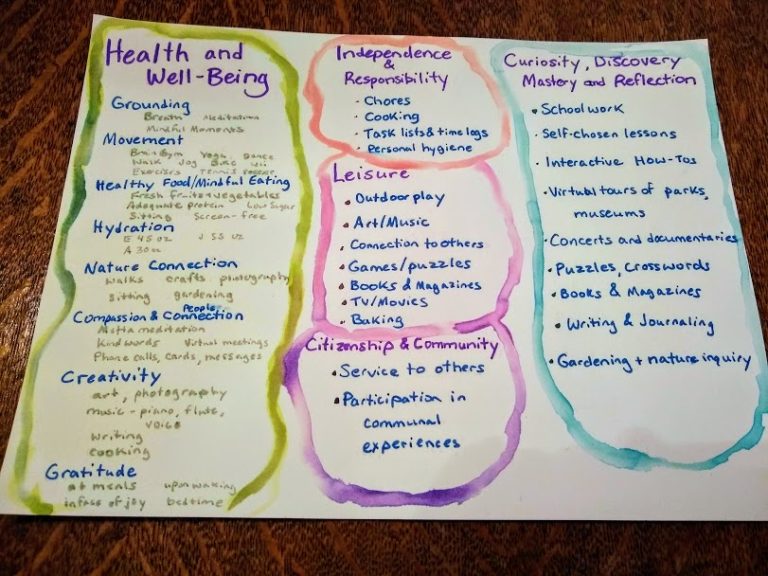 Health and
Well-Being
Grounding
Breath Meditation
Mindful Moments
Movement
Brain Gym Yoga Dance
Walk Jog Bike Wii
Exercises Tennis
Healthy Food/Mindful Eating
Fresh fruits + vegetables
Adequate protein Low Sugar
Sitting Screen-free
Hydration
E 45 oz J 55 oz
A 30 oz
Nature Connection
walks crafts photography
sitting gardening
People
Compassion & Connection
Metta meditation
Kind words Virtual meetings
Phone calls, cards, messages
Creativity
art, photography
music - piano, flute,
voice
writing
cooking
Gratitude
at meals upon waking
in face of joy bedtime
Independence
&
Responsibility
· Chores
· Cooking
· Task lists & time logs
· Personal hygiene
Leisure
• Outdoor play
• Art/Music
• Connection to others
• Games/puzzles
• Books & Magazines
• TV/Movies
• Baking
Citizenship & Community
• Service to others
• Participation in
communal
experiences
Curiosity, Discovery
Mastery and Reflection
• Schoolwork
· Self-chosen lessons
· Interactive How-Tos
· Virtual tours of parks,
museums
· Concerts and documentaries
· Puzzles, Crosswords
· Books & Magazines
• Writing & Journaling
· Gardening + nature inquiry